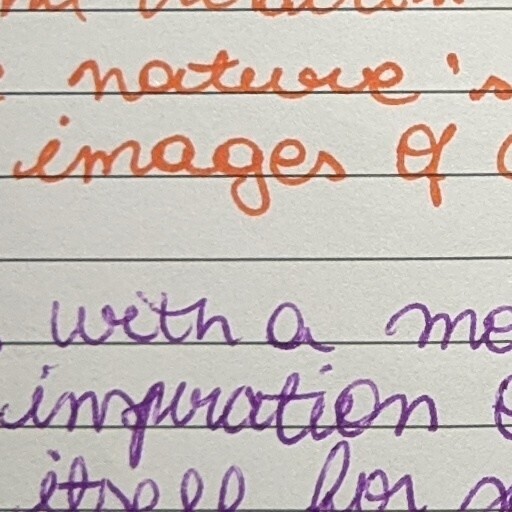 nature's
images of
with a me
inspiration
itself for